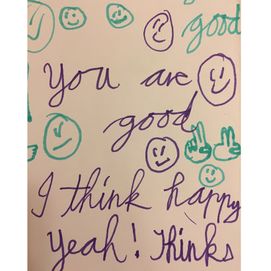 good
You are
good
I think happy
Yeah! Thinks